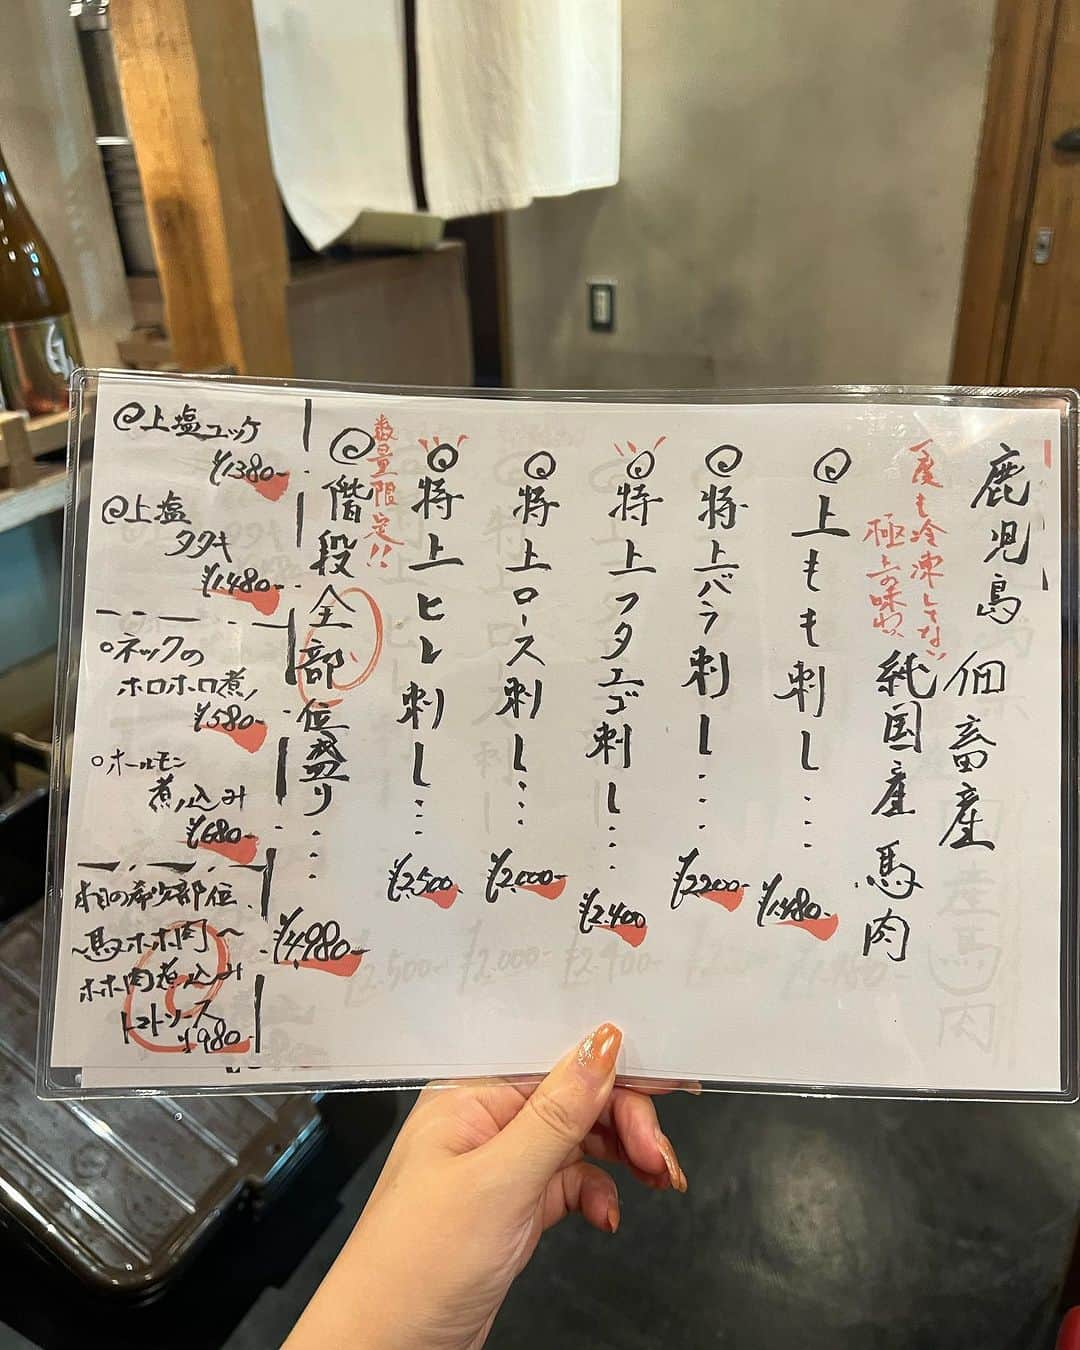 鹿児島 佃畜産
純国産 馬肉
一度も冷凍してない
極上の味わい
上もも刺し…… ¥1,480-
特上バラ刺し…… ¥2200-
特上フタエゴ刺し…… ¥2,400
特上ロース刺し…… ¥2,000-
特上ヒレ刺し…… ¥2,500
数量限定!!
階段全部位盛り…… ¥4,980-
上塩ユッケ
¥1380-
上塩
タタキ
¥1,480-
ネックの
ホロホロ煮
¥580-
ホールモン
煮込み
¥680-
本日の希少部位
~馬ホホ肉~
ホホ肉煮込み
トマトソース
¥980-